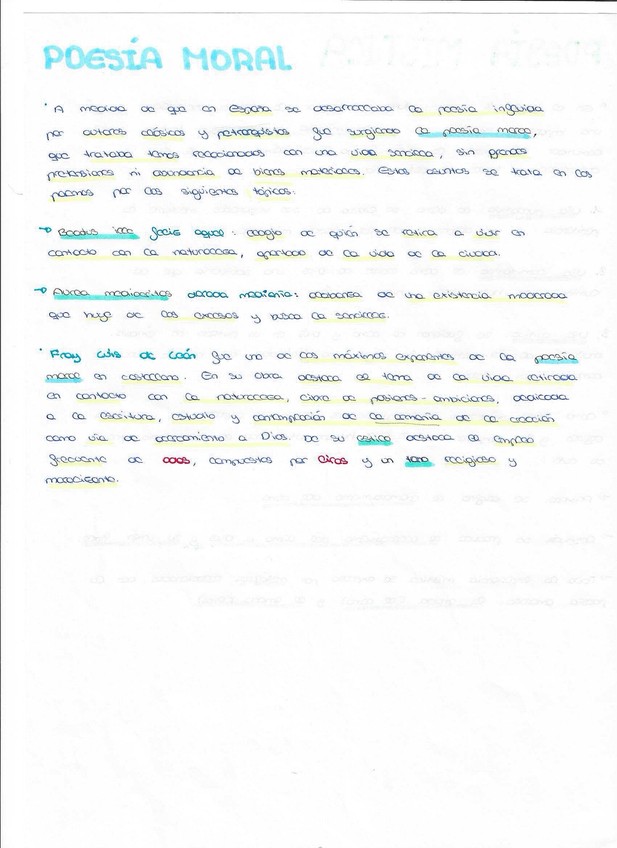 POESÍA MORAL
· A medida de que en España se desarrollaba la poesía influida
por autores clásicos y petrarquistas fue surgiendo la poesía moral,
que trataba temas relacionados con una vida sencilla, sin grandes
pretensiones ni abundancia de bienes materiales. Estos asuntos se trata en los
poemas por los siguientes tópicos:
→ Beatus ille feliz aquel: elogio de quién se retira a vivir en
contacto con la naturaleza, apartado de la vida de la ciudad.
→ Aurea mediocritas dorada medianía: alabanza de una existencia moderada
que huye de los excesos y busca la sencillez.
· Fray Luis de León fue uno de los máximos exponentes de la poesía
moral en castellano. En su obra destaca el tema de la vida retirada
en contacto con la naturaleza, libre de pasiones - ambiciones, dedicada
a la escritura, estudio y contemplación de la armonía de la creación
como vía de acercamiento a Dios. De su estilo destaca el empleo
frecuente de odas, compuestas por liras y un tono religioso y
moralizante.